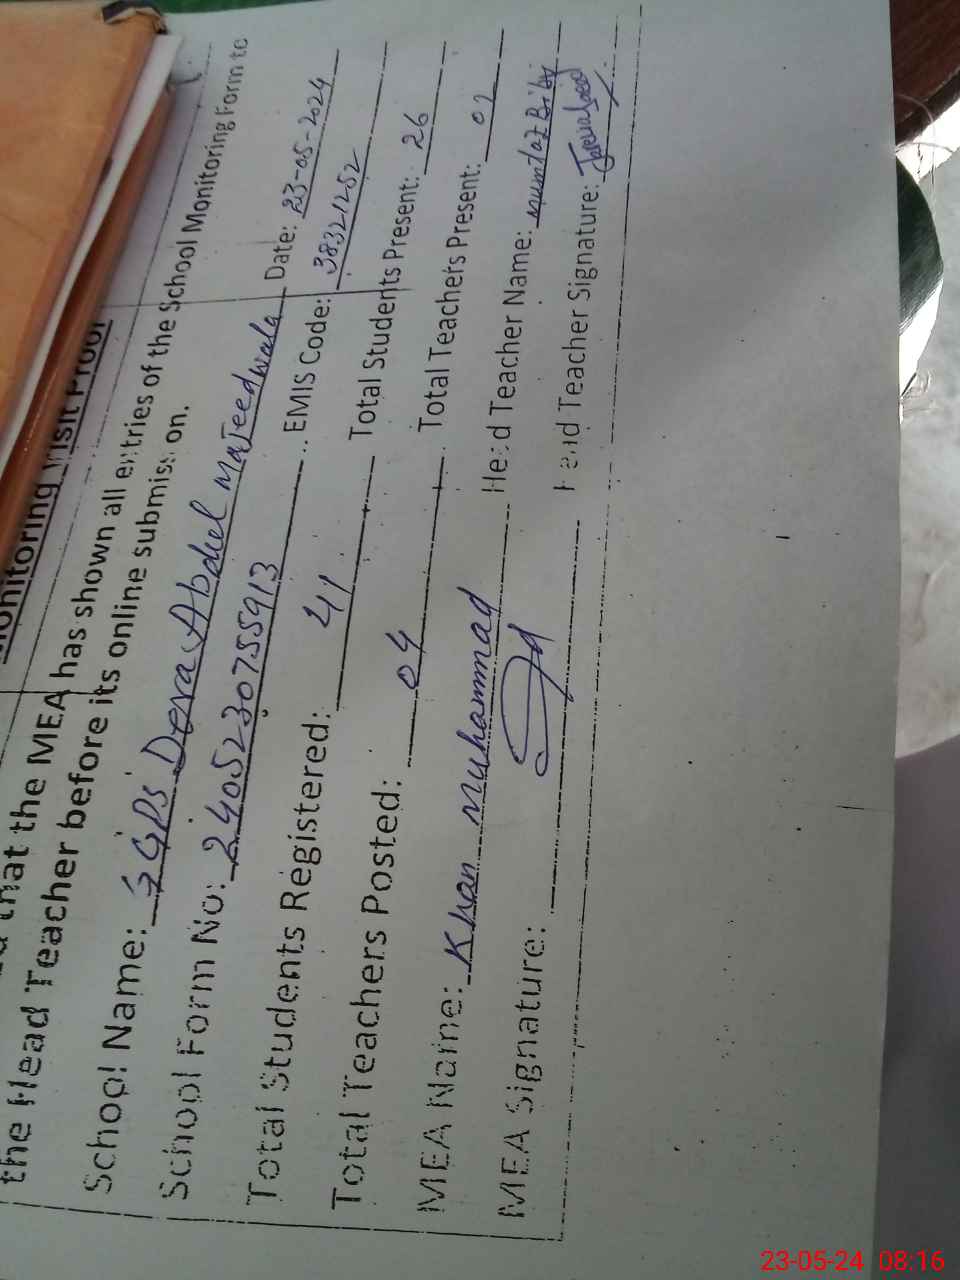 Monitoring Visit Proof
that the MEA has shown all entries of the School Monitoring Form to
the Head Teacher before its online submission.
School Name: GPS Dera Abdul Majeedwala Date: 23-05-2024
School Form No: 2405230755913 EMIS Code: 38321252
Total Students Registered: 41 Total Students Present: 26
Total Teachers Posted: 04 Total Teachers Present: 02
MEA Name: Khan Muhammad Head Teacher Name: Mumtaz Bibi
MEA Signature: Head Teacher Signature:
23-05-24 08:16